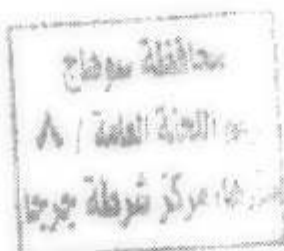 محافظة سوهاج
اللجنة العامة / ٨
مركز شرطة جرجا